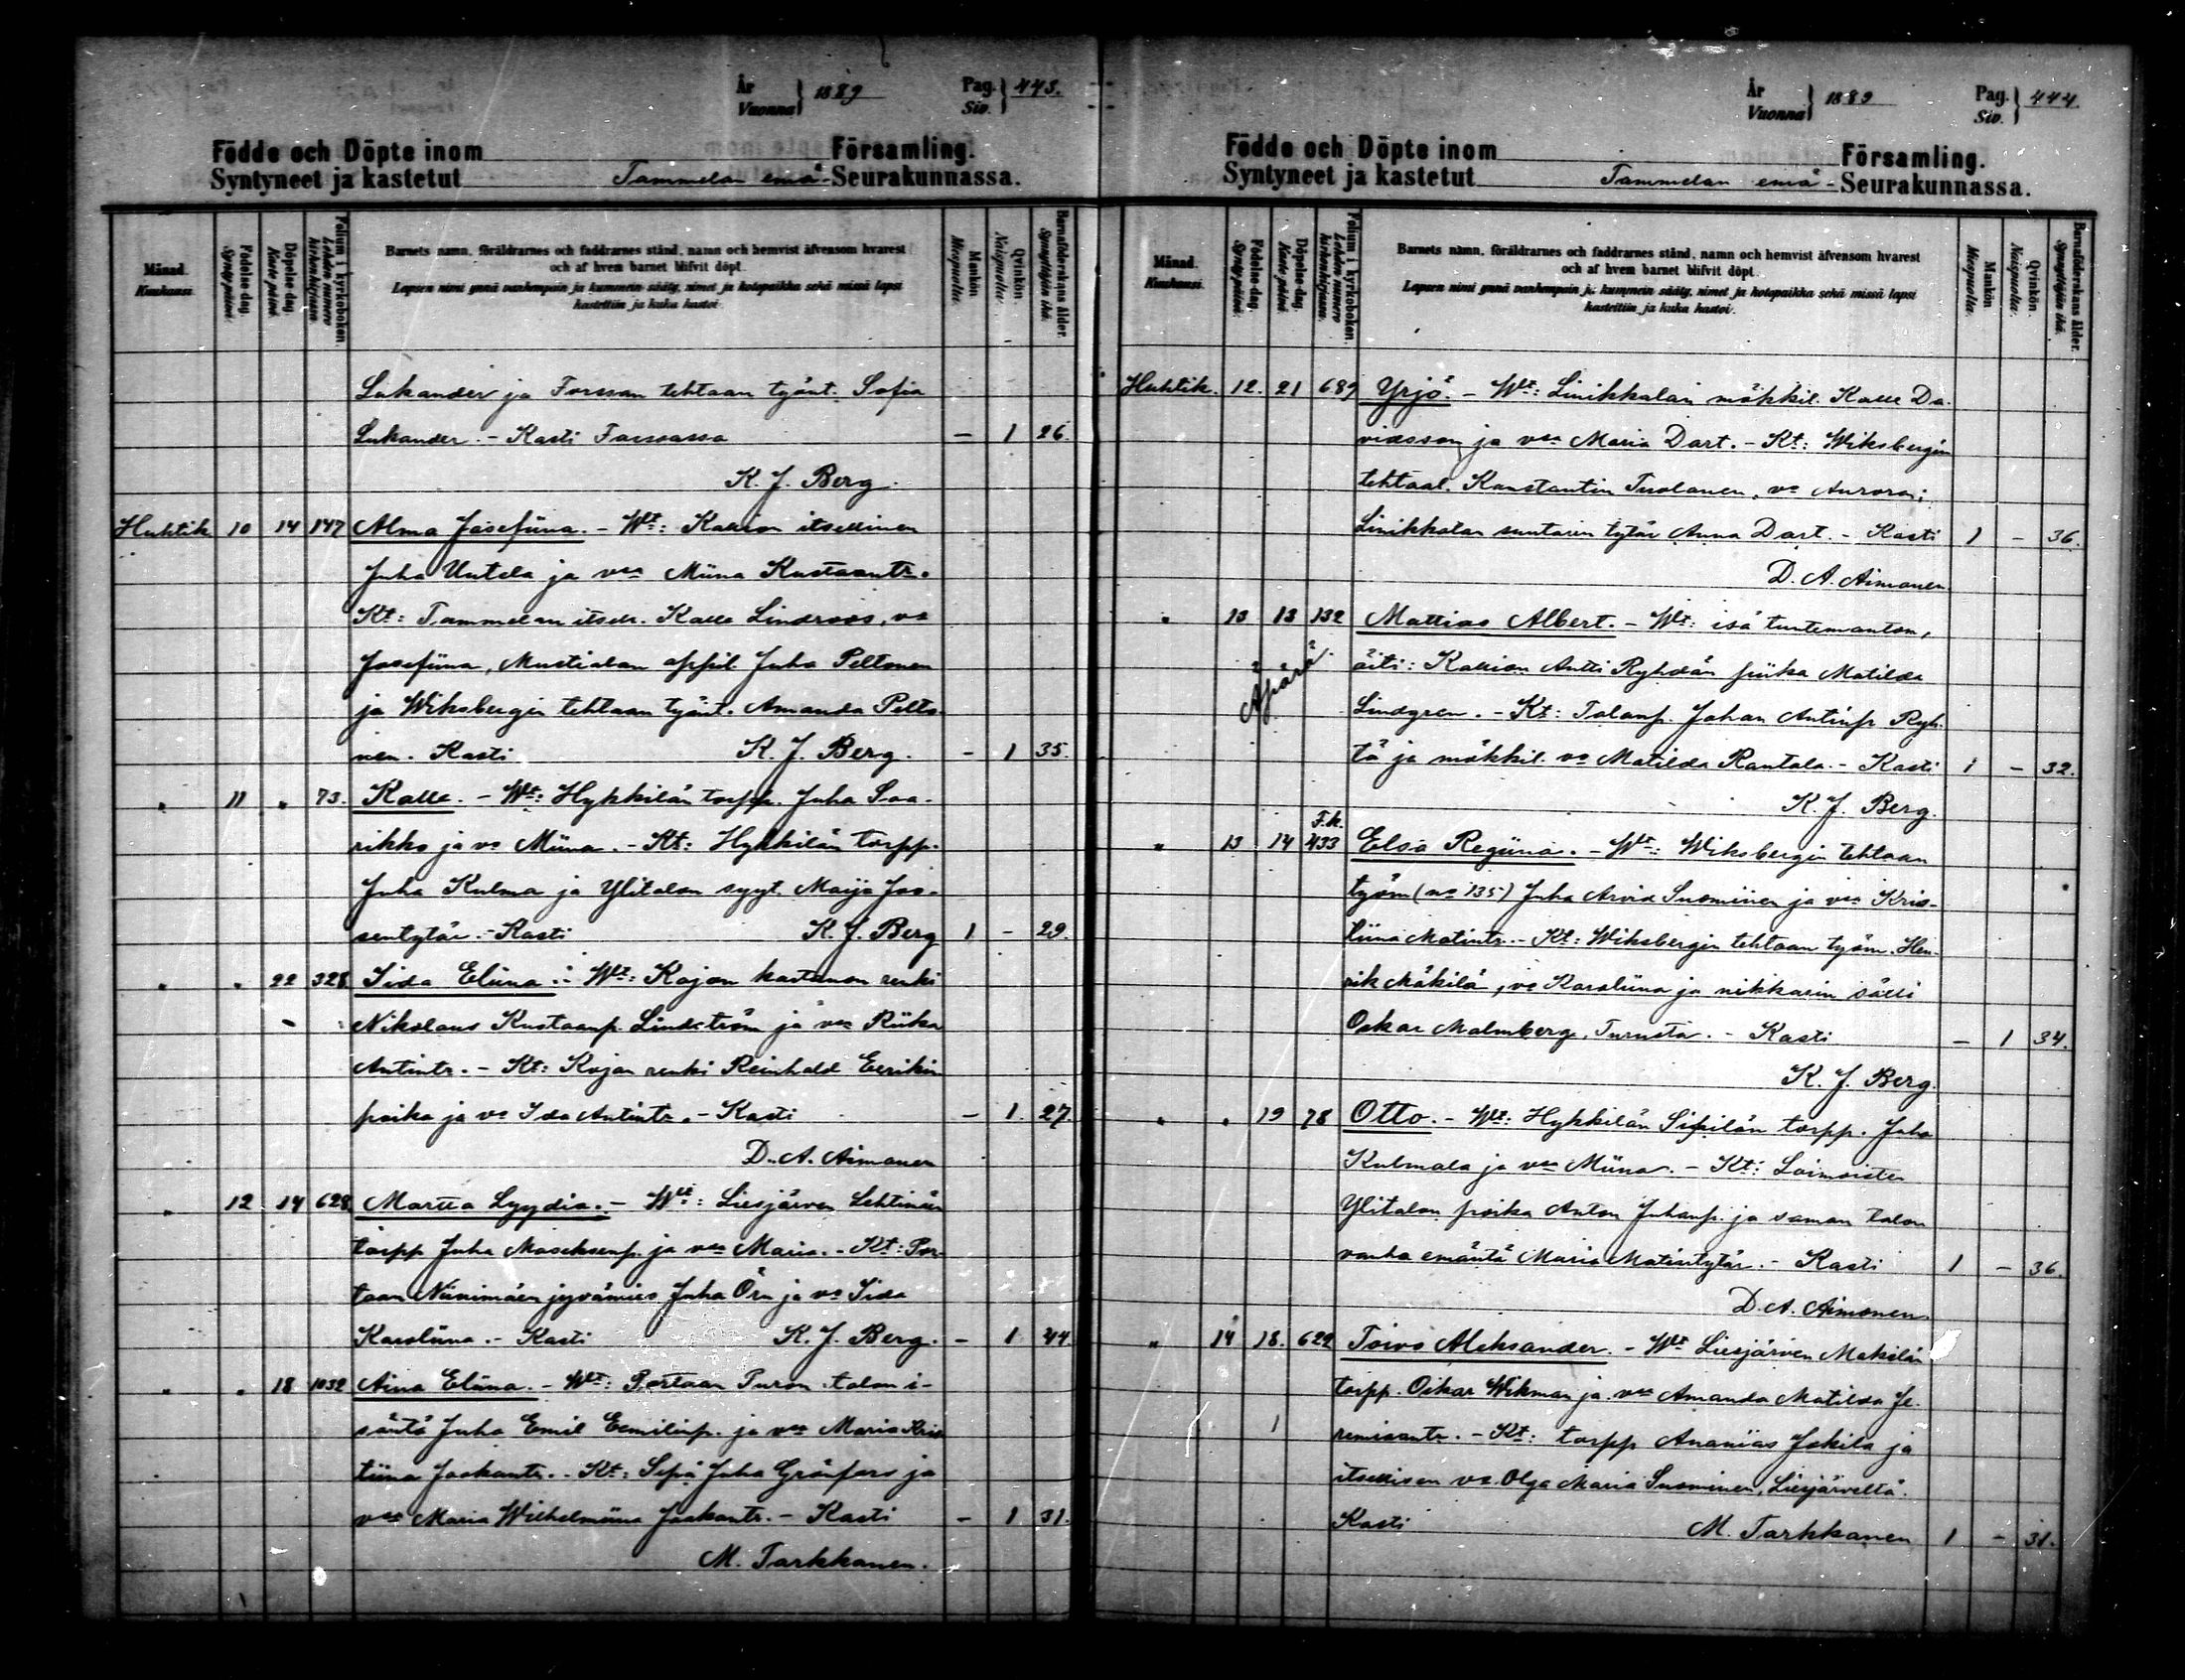 År
Vuonna } 1889 Pag.
Siv. } 443.
Födde och Döpte inom Församling.
Syntyneet ja kastetut Tammelan emä- Seurakunnassa.
Månad.
Kuukausi.
Födelse dag.
Synty päivä.
Döpelse dag.
Kaste päivä.
Folium i kyrkoboken.
Lehden numero kirkonkirjassa.
Barnets namn, föräldrarnes och faddrarnes stånd, namn och hemvist äfvensom hvarest
och af hvem barnet blifvit döpt.
Lapsen nimi ynnä vanhempain ja kummein sääty, nimet ja kotopaikka sekä missä lapsi
kastettiin ja kuka kastoi.
Mankön
Miespuolta.
Qvinkön
Naispuolta.
Barnaföderskans ålder.
Synnyttäjän ikä.
Lukander ja Forssan tehtaan työnt. Sofia
Lukander. - Kasti Forssassa - 1 26.
K. J. Berg.
Huhtik 10 14 147 Alma Josefiina. - Wt: Kallion itsellinen
Juha Untela ja vaa Miina Kustaantr.
Kt: Tammelan itsell. Kalle Lindroos, va
Josefiina, Mustialan oppil Juha Peltonen
ja Wiksbergin tehtaan työnt. Amanda Pelto-
nen. Kasti K. J. Berg. - 1 35.
" 11 " 73. Kalle. - Wt: Hykkilän torpp. Juha Saa-
rikko ja va Miina. - Kt: Hykkilän torpp.
Juha Kulma ja Ylitalon syyt. Maija Joo-
sentytär. - Kasti K. J. Berg 1 - 29.
" " 22 328 Iida Eliina. - Wt: Kojon kartanon renki
Nikolaus Kustaanp. Lindström ja vaa Riika
Antintr. - Kt: Kojan renki Reinhold Eerikin
poika ja va Ida Antintr. - Kasti - 1 27.
D. A. Aimonen
" 12 14 628 Martta Lyydia. - Wt: Liesjärven Lehtimäen
torpp Juha Moseksenp. ja vaa Maria. - Kt: Por-
taan Niinimäen jyvämies Juha Örn ja va Iida
Karoliina. - Kasti K. J. Berg. - 1 44.
" " 18 1032 Aina Eliina. - Wt: Portaan Turon talon i-
säntä Juha Emil Eemilinp. ja vaa Maria Kris
tiina Jaakontr. - Kt: Sepä Juha Grönfors ja
vaa Maria Wilhelmiina Jaakontr. - Kasti - 1 31.
M. Tarkkanen.
År
Vuonna } 1889 Pag.
Siv. } 444
Födde och Döpte inom Församling.
Syntyneet ja kastetut Tammelan emä- Seurakunnassa.
Månad.
Kuukausi.
Födelse-dag.
Synty päivä.
Döpelse-dag.
Kaste päivä.
Folium i kyrkoboken.
Lehden numero kirkonkirjassa.
Barnets namn, föräldrarnes och faddrarnes stånd, namn och hemvist äfvensom hvarest
och af hvem barnet blifvit döpt.
Lapsen nimi ynnä vanhempain ja kummein sääty, nimet ja kotopaikka sekä missä lapsi
kastettiin ja kuka kastoi.
Mankön
Miespuolta.
Qvinkön
Naispuolta.
Barnaföderskans ålder.
Synnyttäjän ikä.
Huhtik. 12. 21 689 Yrjö. - Wt: Linikkalan mökkil. Kalle Da-
vidsson ja vaa Maria Dart. - Kt: Wiksbergin
tehtaal. Konstantin Tuolanen, va Aurora;
Linikkalan suutarin tytär Anna Dart. - Kasti 1 - 36.
D. A. Aimonen
" 13 13 132 Mattias Albert. - Wt: isä tuntematon,
Äpärä. äiti: Kallion Antti Ryhdän piika Matilda
Lindgren. - Kt: Talonp. Johan Antinp Ryh-
tä ja mökkil. va Matilda Rantala. - Kasti 1 - 32.
K. J. Berg.
F.k.
" 13 14 433 Elsa Regiina. - Wt: Wiksbergin tehtaan
työm (no 135) Juha Arvid Suominen ja vaa Kris-
tiina Matintr. - Kt: Wiksbergin tehtaan työm. Hen-
rik Mäkilä, va Karoliina ja nikkarin sälli
Oskar Malmberg, Turusta. - Kasti - 1 34.
K. J. Berg.
" " 19 78 Otto. - Wt: Hykkilän Sipilän torpp. Juha
Kulmala ja vaa Miina. - Kt: Loimoisten
Ylitalon poika Anton Juhanp. ja saman talon
vanha emäntä Maria Matintytär. - Kasti 1 - 36.
D. A. Aimonen.
" 14 18. 629 Toivo Aleksander. - Wt Liesjärven Mäkilän
torpp. Oskar Wikman ja vaa Amanda Matilda Je-
1 remiaantr. - Kt: torpp Ananias Jokila ja
itsellisen va Olga Maria Suominen, Liesjärveltä.
Kasti M. Tarkkanen 1 - 31.